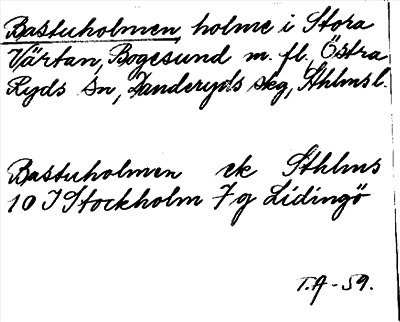 Bastuholmen, holme i Stora
Värtan, Bogesund m. fl., Östra
Ryds sn, Danderyds skg, Sthlms l.
Bastuholmen ek Sthlms
10 I Stockholm 7g Lidingö
T.A-59.